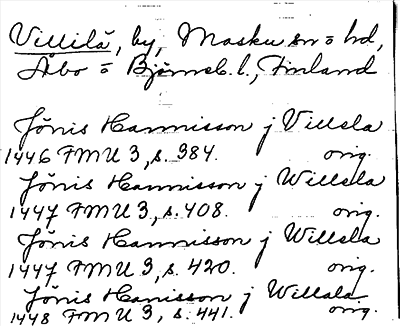 Villilä, by, Masku sn o hd,
Åbo o Björneb. l., Finland
Jönis Hannisson j Villela
1446 FMU 3, s. 384. orig.
Jönis Hannisson j Willela
1447 FMU 3, s. 408. orig.
Jönis Hannisson j Willela
1447 FMU 3, s. 420. orig.
Jönis Hanisson j Willala
1448 FMU 3, s. 441. orig.